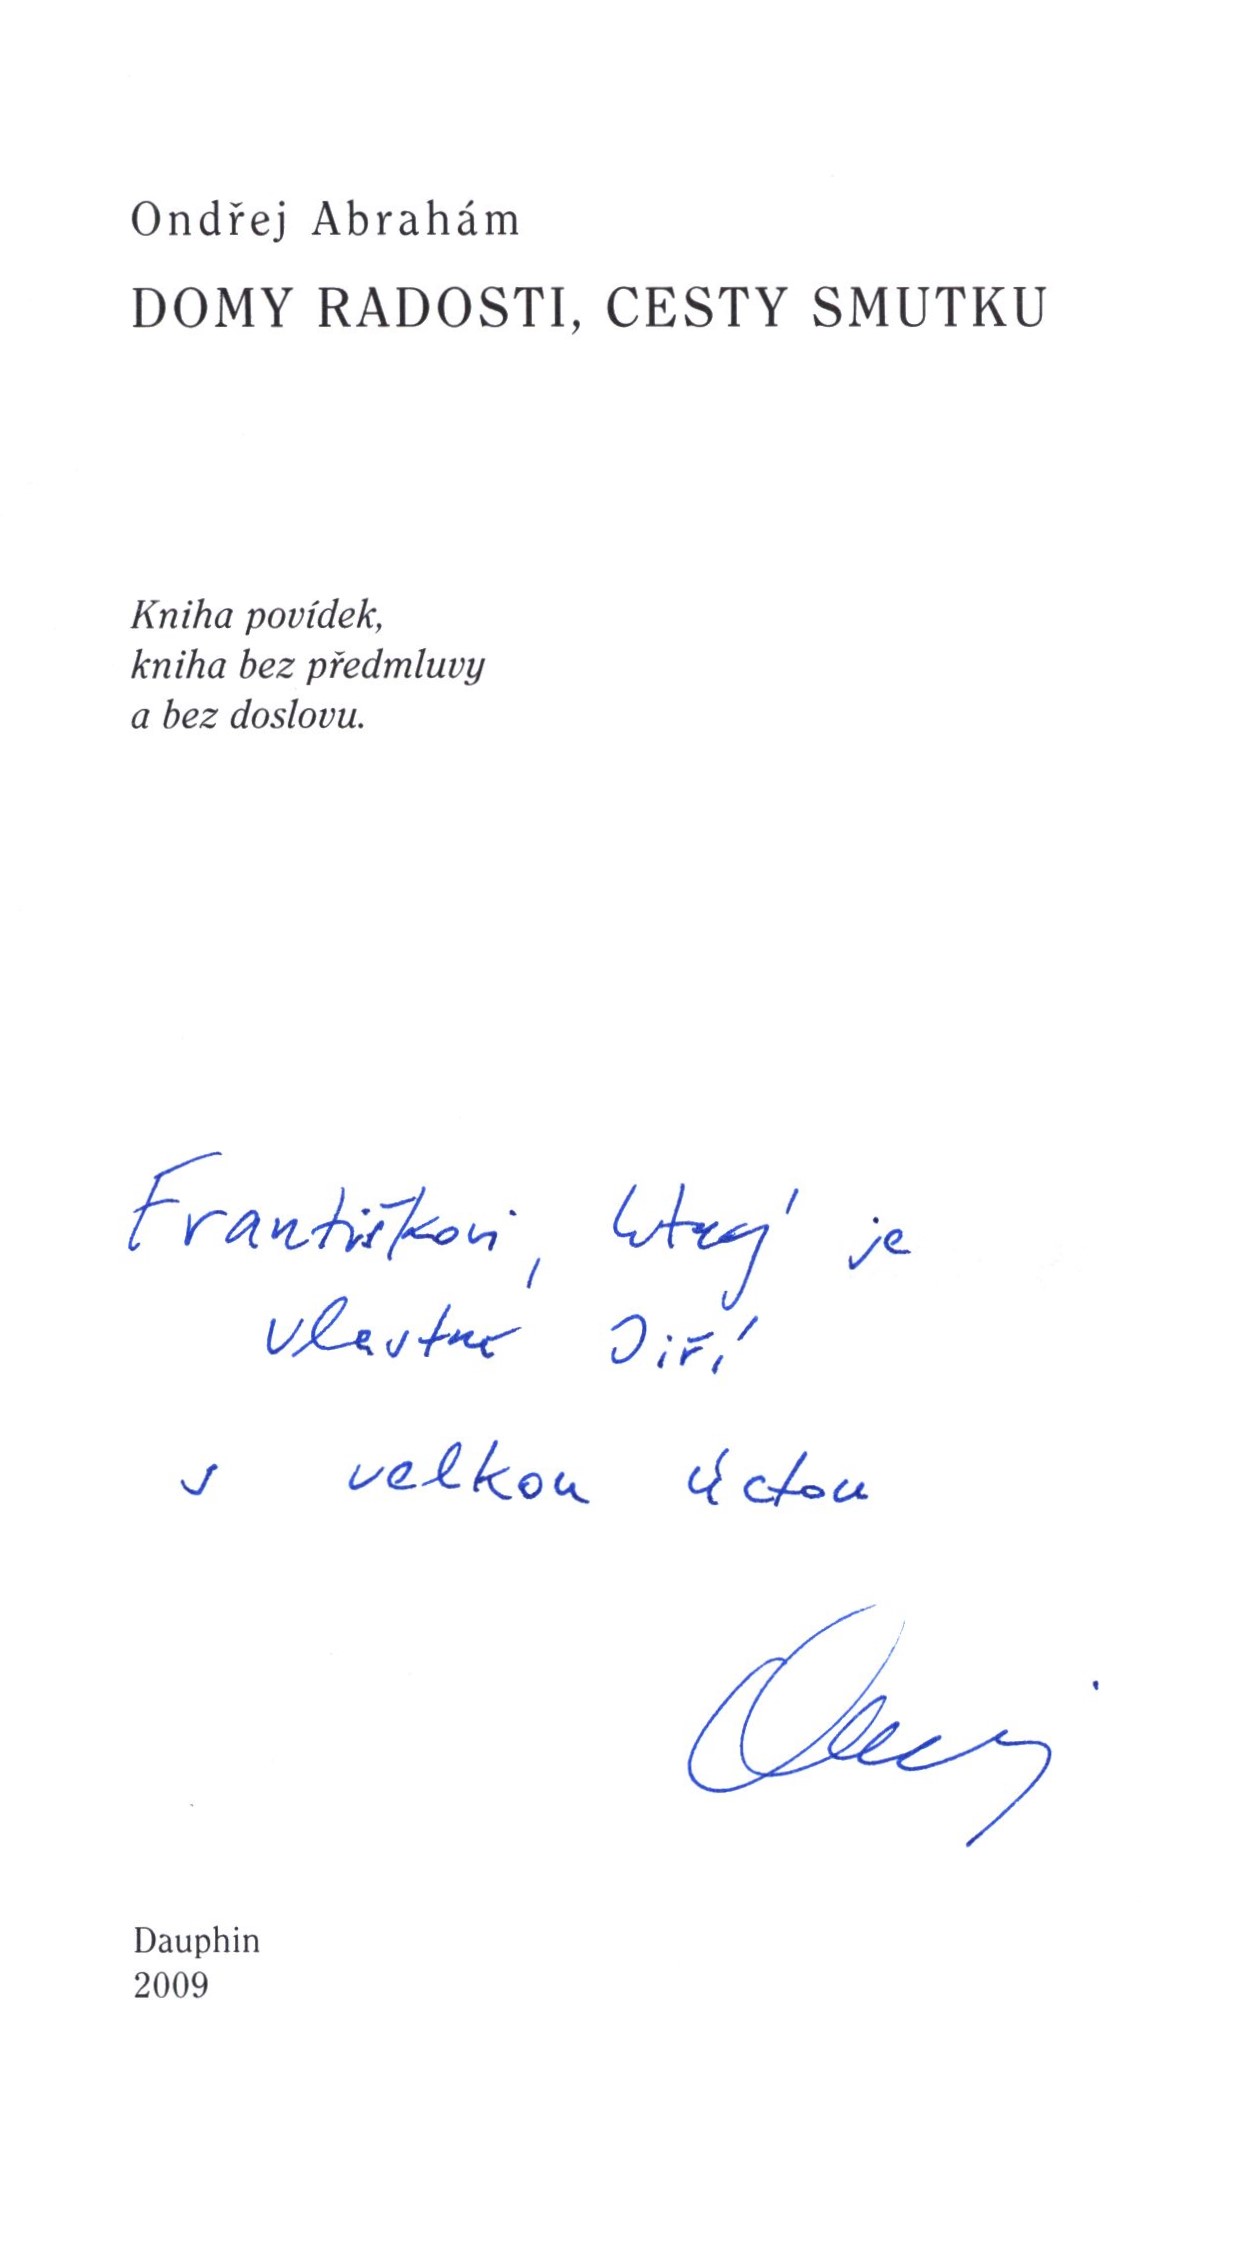 Ondřej Abrahám
DOMY RADOSTI, CESTY SMUTKU
Kniha povídek,
kniha bez předmluvy
a bez doslovu.
Františkovi, který je
vlastně Jiří
s velkou úctou
Dauphin
2009